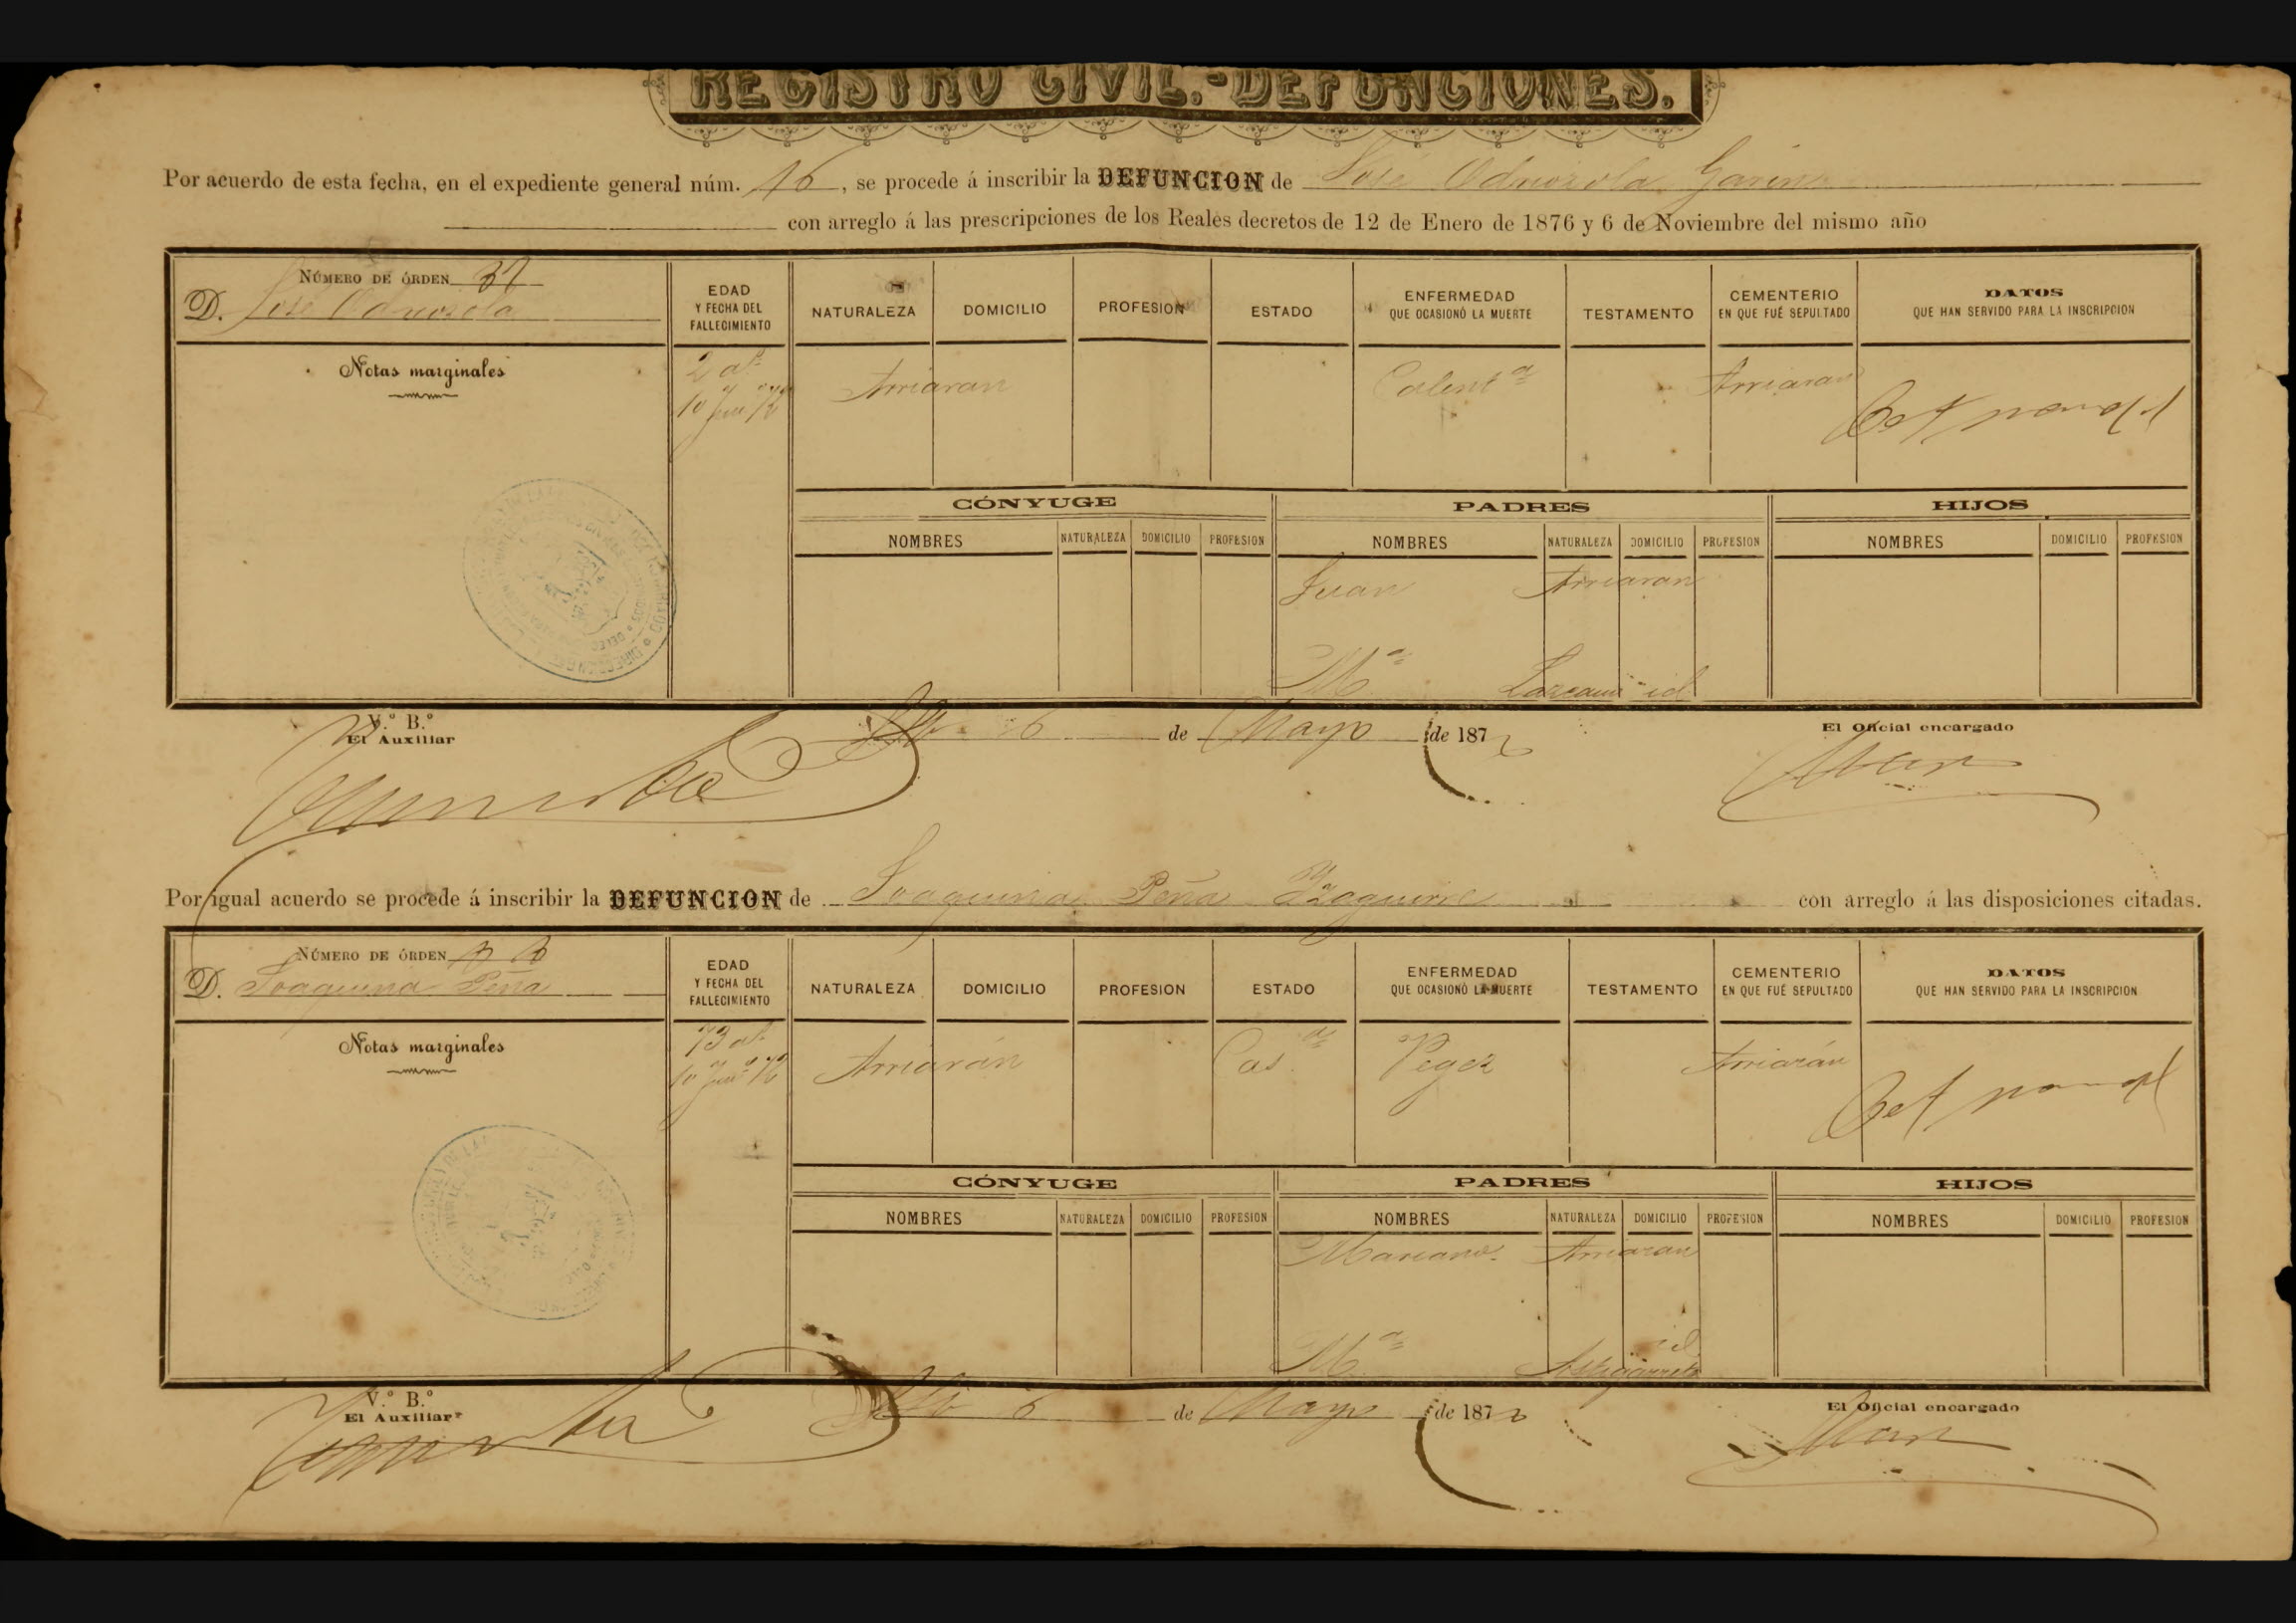 REGISTRO CIVIL.-DEFUNCIONES.
Por acuerdo de esta fecha, en el expediente general núm. 16, se procede á inscribir la DEFUNCION de José Odnozola
con arreglo á las prescripciones de los Reales decretos de 12 de Enero de 1876 y 6 de Noviembre del mismo año
NÚMERO DE ÓRDEN 37
D. José Odnozola
EDAD Y FECHA DEL FALLECIMIENTO
NATURALEZA DOMICILIO PROFESION ESTADO ENFERMEDAD QUE OCASIONÓ LA MUERTE TESTAMENTO CEMENTERIO EN QUE FUÉ SEPULTADO DATOS QUE HAN SERVIDO PARA LA INSCRIPCION
Notas marginales
2 Arriaran Calentª Arriaran
10
CÓNYUGE PADRES HIJOS
NOMBRES NATURALEZA DOMICILIO PROFESION NOMBRES NATURALEZA DOMICILIO PROFESION NOMBRES DOMICILIO PROFESION
Juan Arriaran
Mª id
V.º B.º
El Auxiliar
6 de Mayo de 187
El Oficial encargado
Por igual acuerdo se procede á inscribir la DEFUNCION de Joaquina Peña Yzaguirre con arreglo á las disposiciones citadas.
NÚMERO DE ÓRDEN
D. Joaquina Peña
EDAD Y FECHA DEL FALLECIMIENTO
NATURALEZA DOMICILIO PROFESION ESTADO ENFERMEDAD QUE OCASIONÓ LA MUERTE TESTAMENTO CEMENTERIO EN QUE FUÉ SEPULTADO DATOS QUE HAN SERVIDO PARA LA INSCRIPCION
Notas marginales
73 Arriarán Cas.da Vegez Arriarán
10
CÓNYUGE PADRES HIJOS
NOMBRES NATURALEZA DOMICILIO PROFESION NOMBRES NATURALEZA DOMICILIO PROFESION NOMBRES DOMICILIO PROFESION
Mariano Arriaran
Mª id
V.º B.º
El Auxiliar
6 de Mayo de 187
El Oficial encargado